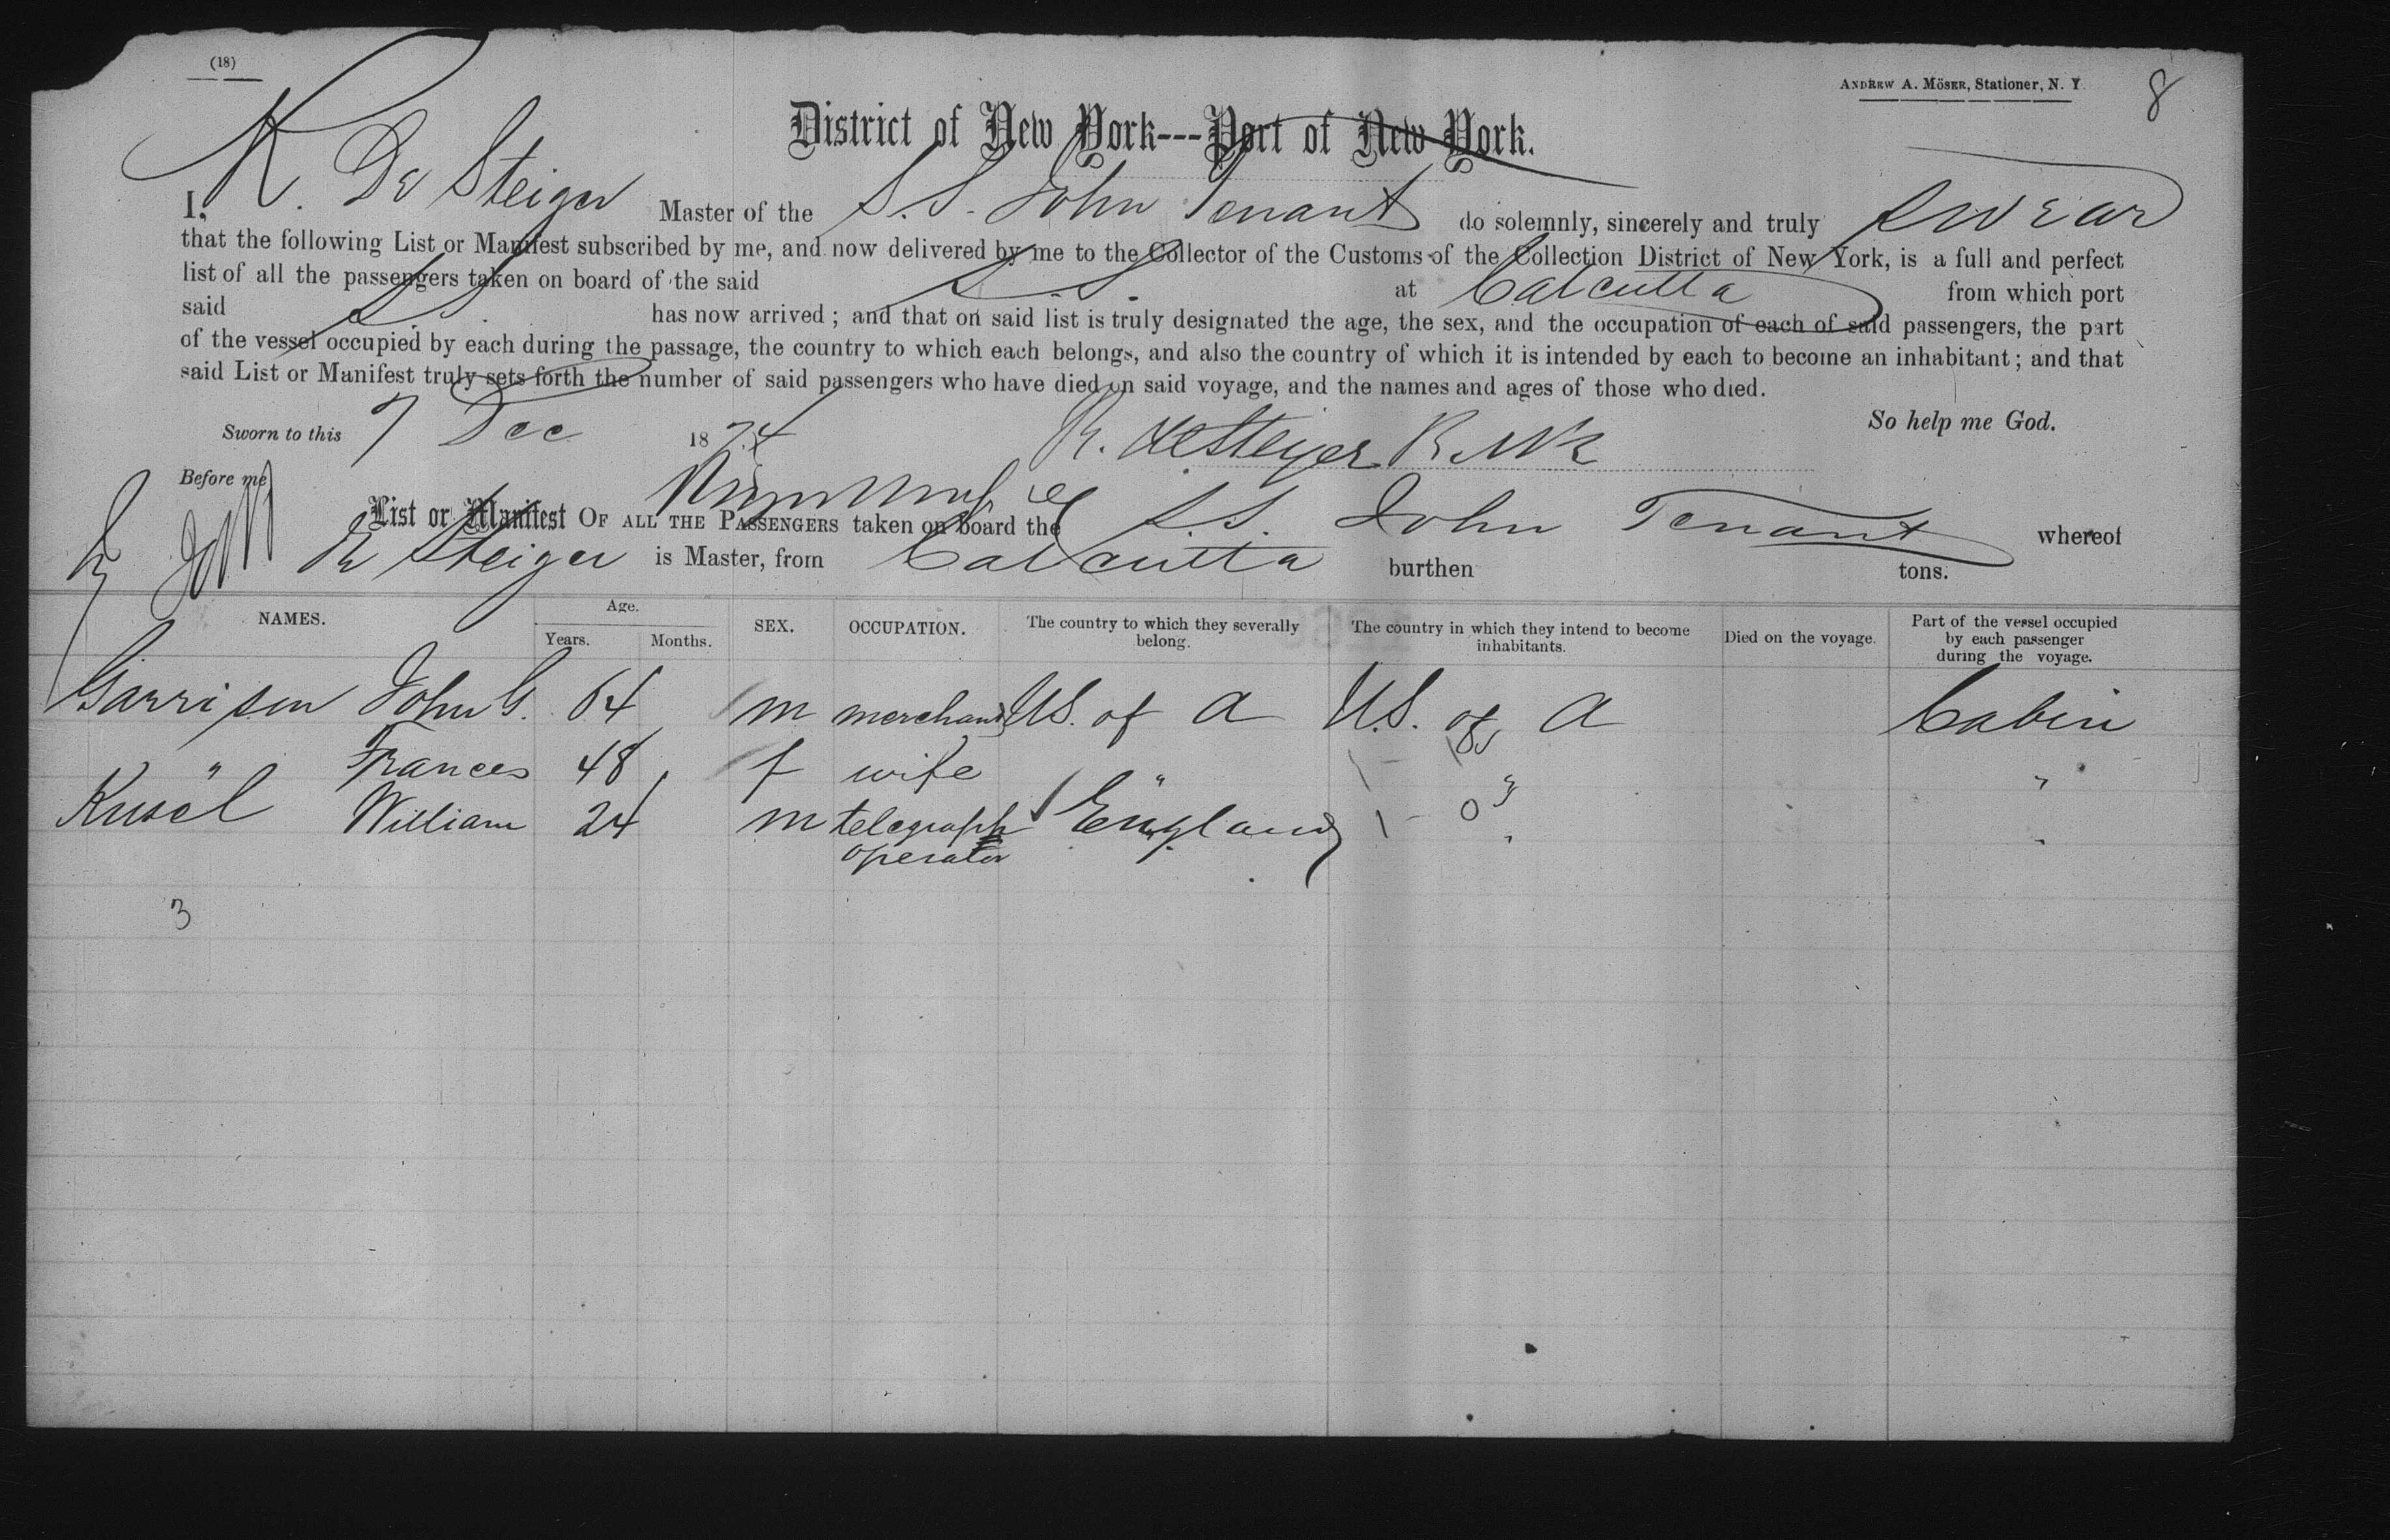 (18)
ANDREW A. MÖSER, Stationer, N. Y.
8
District of New York---Port of New York.
I, R. De Steiger Master of the S.S. John Tenant do solemnly, sincerely and truly swear
that the following List or Manifest subscribed by me, and now delivered by me to the Collector of the Customs of the Collection District of New York, is a full and perfect
list of all the passengers taken on board of the said S.S. at Calcutta from which port
said S.S. has now arrived; and that on said list is truly designated the age, the sex, and the occupation of each of said passengers, the part
of the vessel occupied by each during the passage, the country to which each belongs, and also the country of which it is intended by each to become an inhabitant; and that
said List or Manifest truly sets forth the number of said passengers who have died on said voyage, and the names and ages of those who died.
Sworn to this 7 Dec 1874 R. de Steiger
So help me God.
Before me
List or Manifest OF ALL THE PASSENGERS taken on board the S.S. John Tenant whereof
De Steiger is Master, from Calcutta burthen tons.
NAMES. Age. Years. Months. SEX. OCCUPATION. The country to which they severally belong. The country in which they intend to become inhabitants. Died on the voyage. Part of the vessel occupied by each passenger during the voyage.
Garrison John G. 64 m merchant U.S. of A U.S. of A Cabin
" Frances 48 f wife " " "
Kusel William 24 m telegraph England " "
operator
3